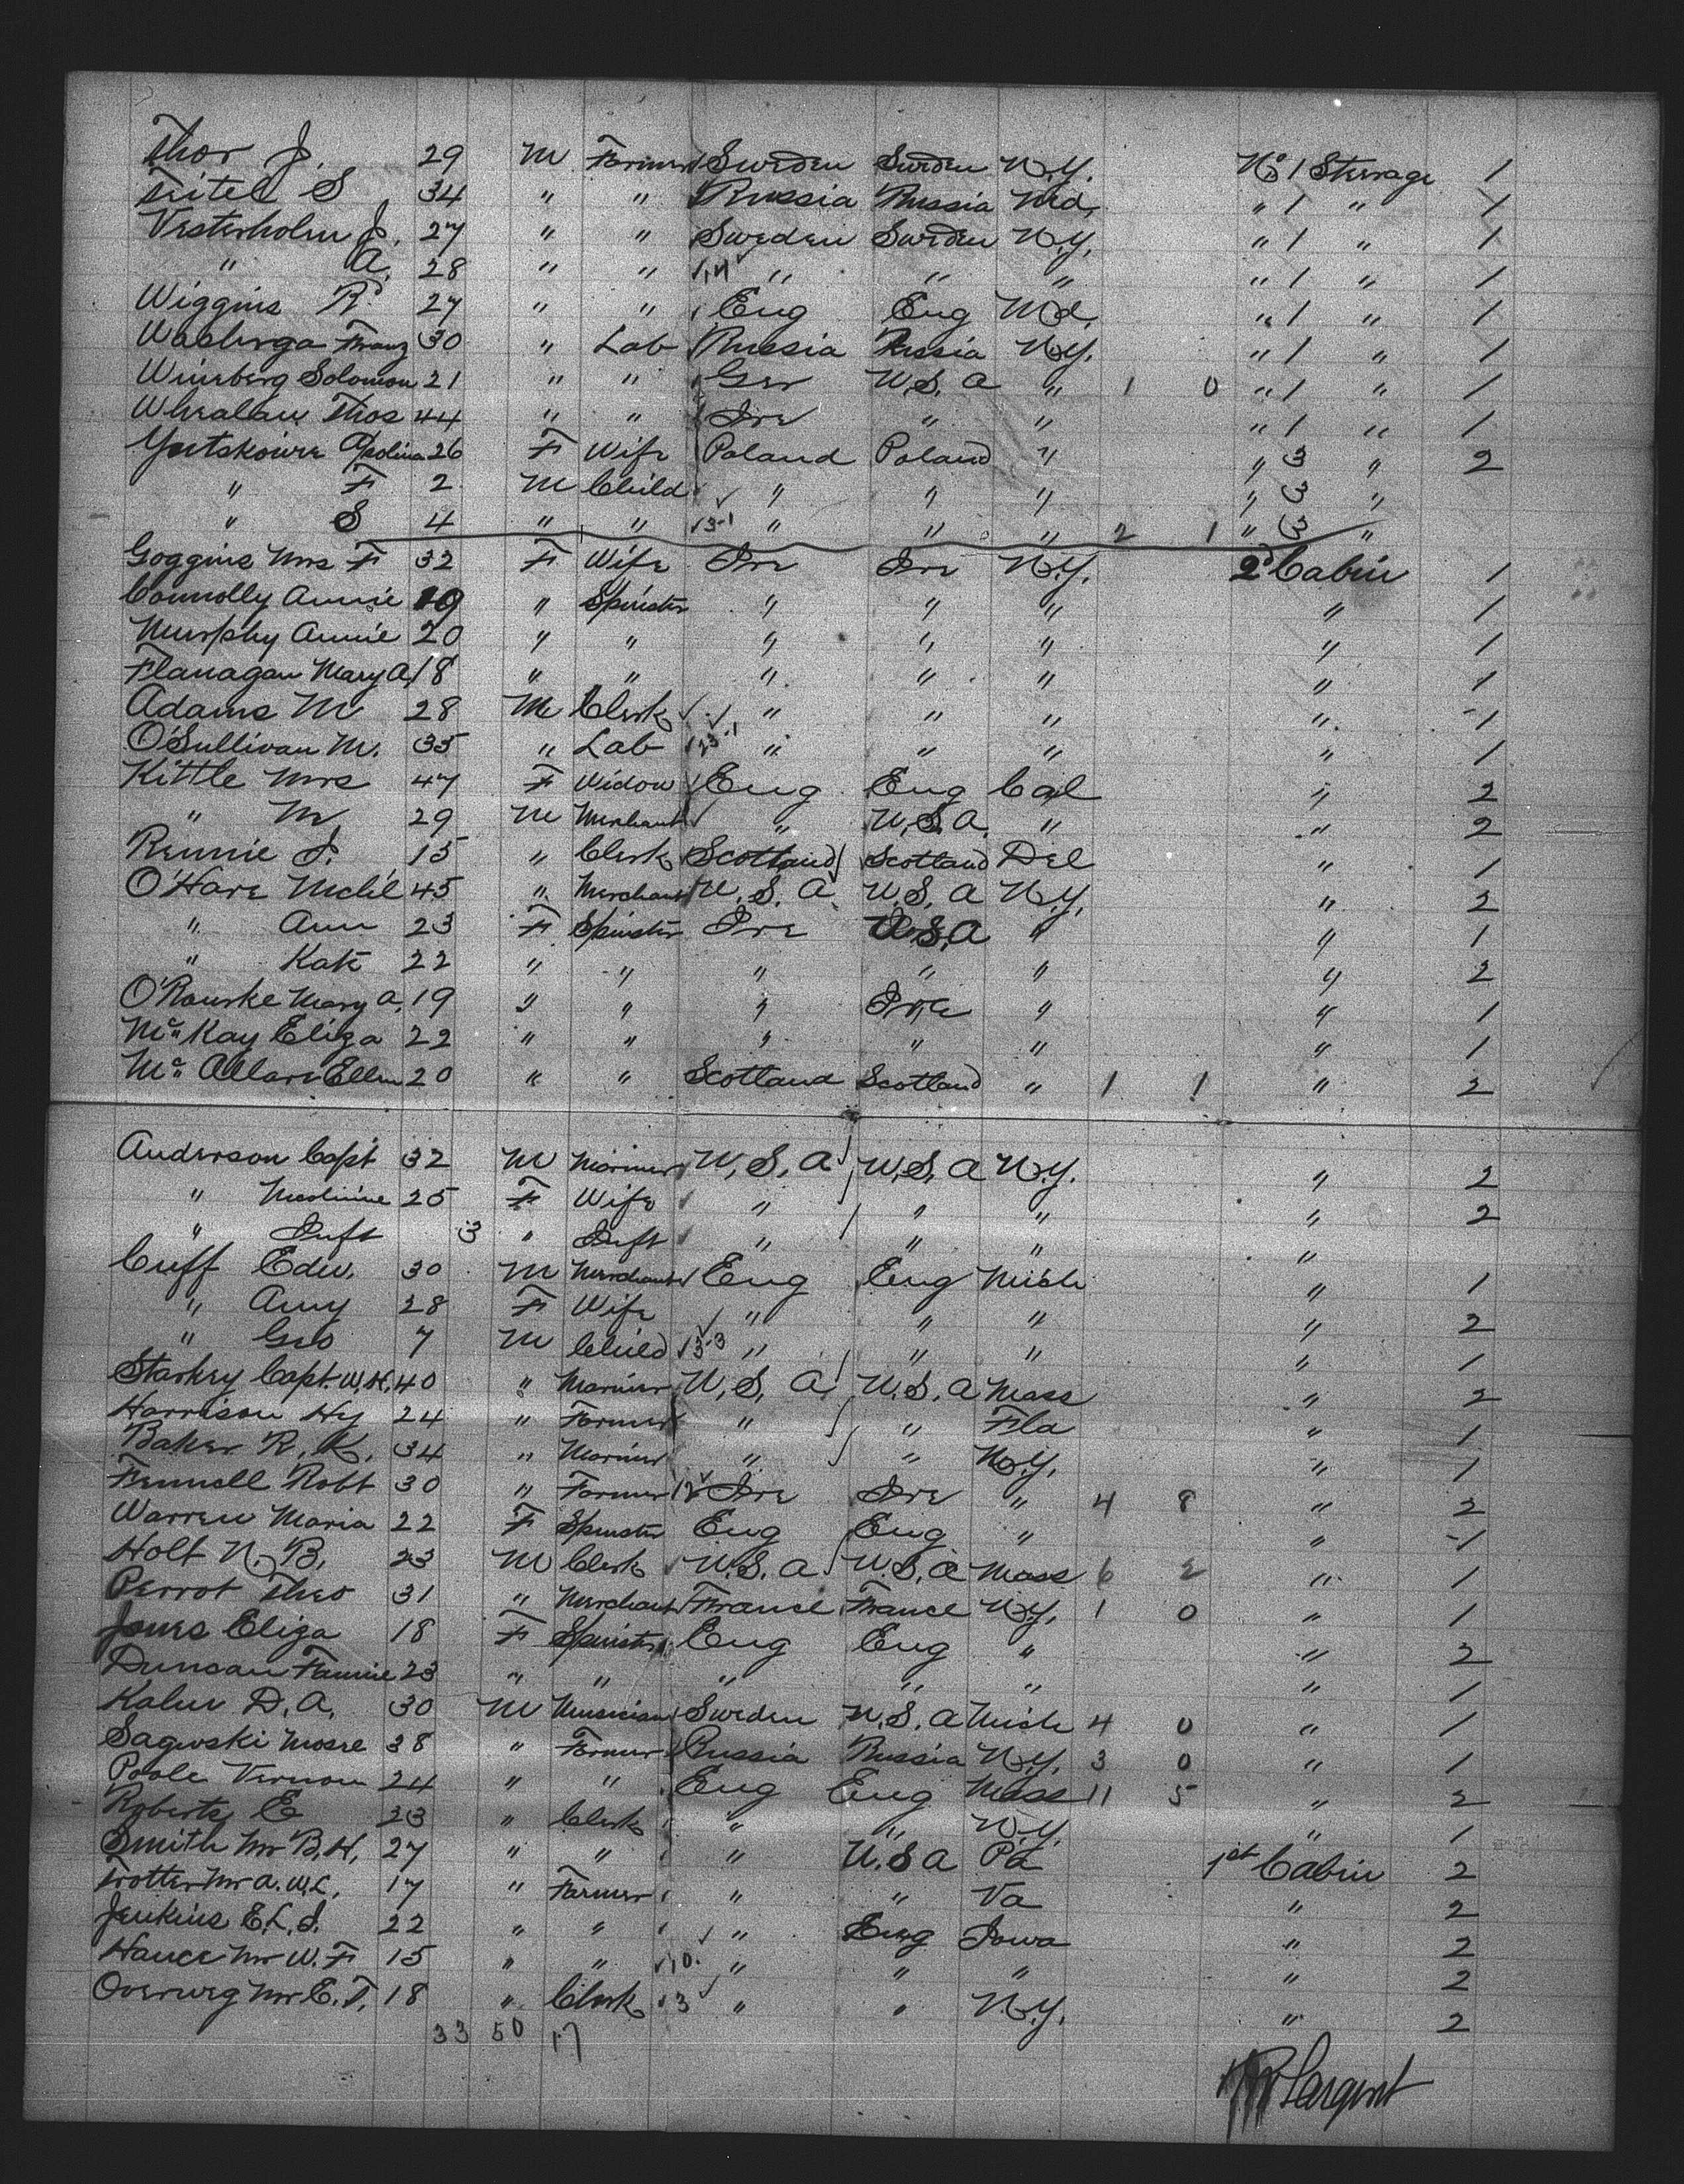 Thor J. 29 M Farmer Sweden Sweden N.Y. No 1 Steerage 1
Teitel S 34 " " Russia Russia Md. " 1 " 1
Vesterholm J. 27 " " Sweden Sweden N.Y. " 1 " 1
" A. 28 " " " " " " 1 " 1
Wiggins R. 27 " " Eng Eng Md. " 1 " 1
Franz 30 " Lab Russia Russia N.Y. " 1 " 1
Wineberg Solomon 21 " " Ger U.S.A " 1 0 " 1 " 1
Whealaw Thos 44 " " Ire " " " 1 " 1
26 F Wife Poland Poland " " 3 " 2
" F 2 M Child " " " " 3 "
" S 4 " " 3-1 " " " 2 1 " 3 "
Goggins Mrs F 32 F Wife Ire Ire N.Y. 2d Cabin 1
Connolly Annie 19 " Spinster " " " " 1
Murphy Annie 20 " " " " " " 1
Flanagan Mary A 18 " " " " " " 1
Adams M 28 M Clerk " " " " 1
O'Sullivan M. 35 " Lab 23-1 " " " " 1
Kittle Mrs 47 F Widow Eng Eng Cal " 2
" M 29 M Merchant " U.S.A. " " 2
Rennie J. 15 " Clerk Scotland Scotland Del " 1
O'Hare Mich'l 45 " Merchant U.S.A. U.S.A N.Y. " 2
" Ann 23 F Spinster Ire U.S.A " " 1
" Kate 22 " " " " " " 2
O'Rourke Mary A. 19 " " " Ire " " 1
McKay Eliza 22 " " " " " " 1
Ellen 20 " " Scotland Scotland " 1 1 " 2
Anderson Capt 32 M Mariner U.S.A U.S.A N.Y. " 2
" 25 F Wife " " " " 2
" Inft 3 " Inft " " " "
Cuff Edw. 30 M Merchant Eng Eng Mich " 1
" Amy 28 F Wife " " " " 2
" Geo 7 M Child 3-3 " " " " 1
Starkey Capt. W.H. 40 " Mariner U.S.A U.S.A Mass " 2
Harrison Hy 24 " Farmer " " Fla " 1
Baker R.K. 34 " Mariner " " N.Y. " 1
Fennell Robt 30 " Farmer 12 Ire Ire " 4 8 " 2
Warren Maria 22 F Spinster Eng Eng " " 1
Holt N.B. 23 M Clerk U.S.A U.S.A Mass 6 2 " 1
Perrot Theo 31 " Merchant France France N.Y. 1 0 " 1
Jones Eliza 18 F Spinster Eng Eng " " 2
Duncan Fannie 23 " " " " " " 1
Kalur D.A. 30 M Musician Sweden U.S.A Mich 4 0 " 1
Sagowski Mosse 38 " Farmer Russia Russia N.Y. 3 0 " 1
Poole Vernon 24 " " Eng Eng Mass 11 5 " 2
Roberts E 23 " Clerk " " N.Y. " 1
Smith Mr B.H. 27 " " " U.S.A Pa 1st Cabin 2
Trotter Mr A.W.L. 17 " Farmer " " Va " 2
Jenkins E.L.J. 22 " " " Eng Iowa " 2
Hance Mr W.F 15 " " 10 " " " " 2
Overweg Mr E.T. 18 " Clerk 3 " " N.Y. " 2
33 50 17
Sargent